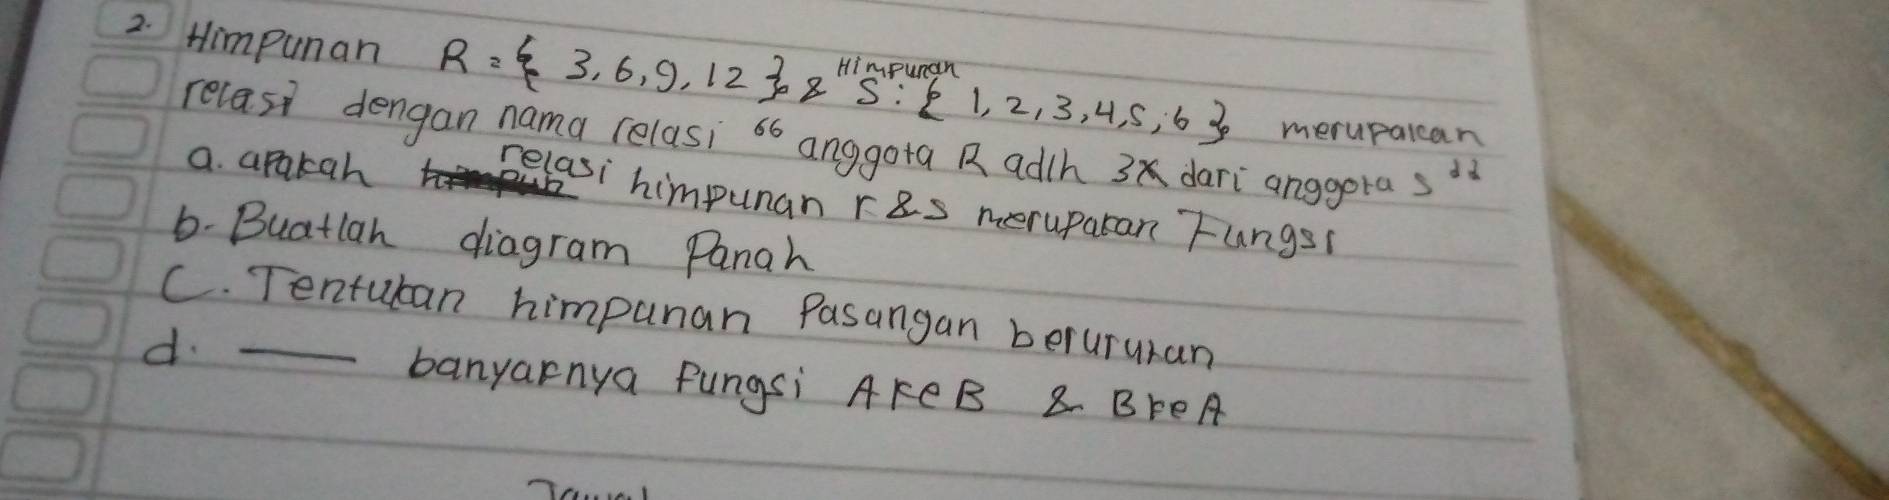 2. Himpunan R = { 3, 6, 9, 12 } & Himpunan S : { 1, 2, 3, 4, 5, 6 } merupakan
relasi dengan nama relasi “ anggota R adlh 3x dari anggota S ”
a. apakah relasi himpunan r & s merupakan Fungsi
b. Buatlah diagram Panah
C. Tentukan himpunan Pasangan berurutan
d. —— banyaknya Fungsi A ke B & B ke A